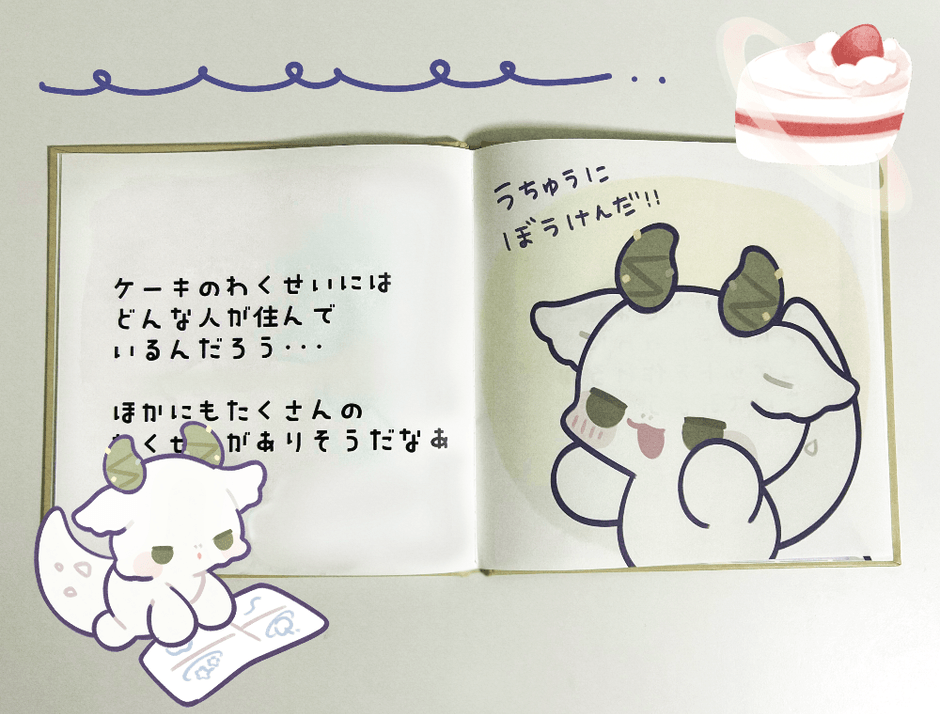 ケーキのわくせいには
どんな人が住んで
いるんだろう・・・
ほかにもたくさんの
くせ がありそうだなぁ
うちゅうに
ぼうけんだ!!